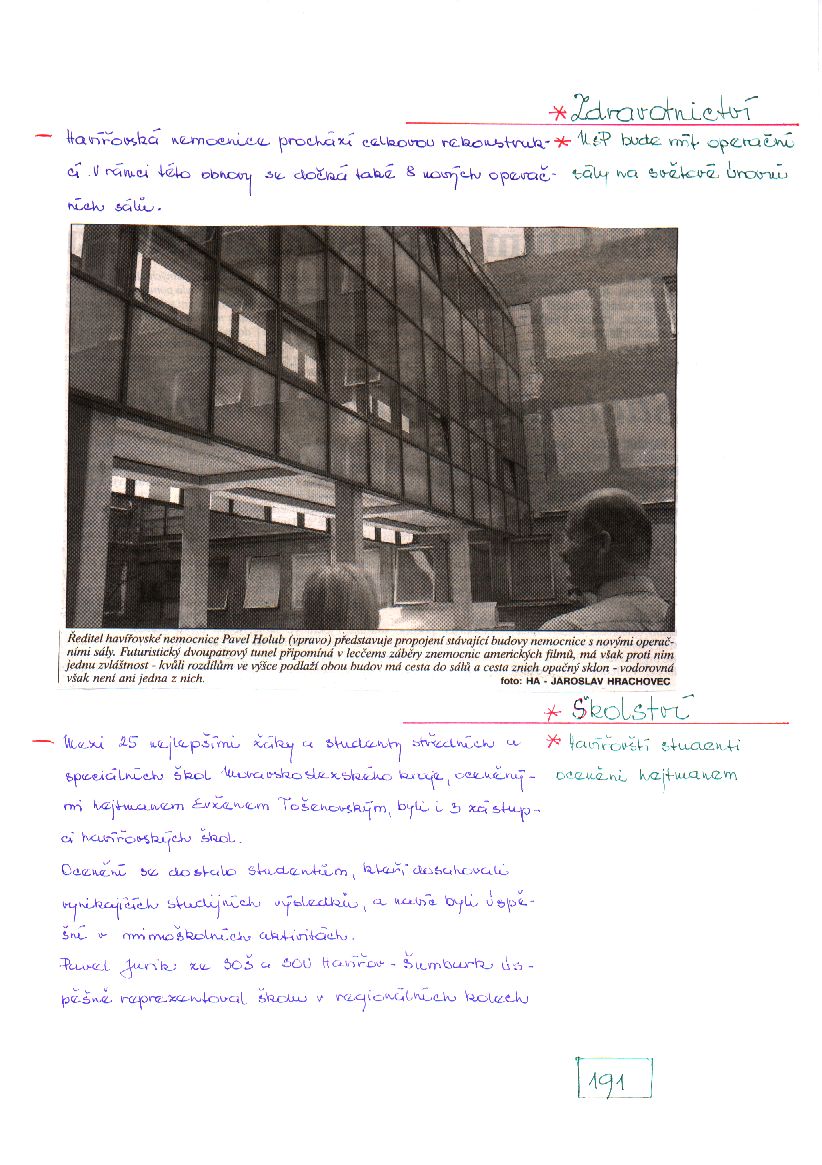 * Zdravotnictví
– Havířovská nemocnice prochází celkovou rekonstruk-
cí. V rámci této obnovy se dočká také 8 nových operač-
ních sálů.
* NsP bude mít operační
sály na světové úrovni
Ředitel havířovské nemocnice Pavel Holub (vpravo) představuje propojení stávající budovy nemocnice s novými operač-
ními sály. Futuristický dvoupatrový tunel připomíná v lecčems záběry znemocnic amerických filmů, má však proti nim
jednu zvláštnost - kvůli rozdílům ve výšce podlaží obou budov má cesta do sálů a cesta znich opačný sklon - vodorovná
však není ani jedna z nich.
foto: HA - JAROSLAV HRACHOVEC
* Školství
– Mezi 25 nejlepšími žáky a studenty středních a
speciálních škol Moravskoslezského kraje, oceněný-
mi hejtmanem Evženem Tošenovským, byli i 3 zástup-
ci havířovských škol.
Ocenění se dostalo studentům, kteří dosahovali
vynikajících studijních výsledků, a navíc byli úspě-
šní v mimoškolních aktivitách.
Pavel Jurik: ze SOŠ a SOU Havířov - Šumbark ús-
pěšně reprezentoval školu v regionálních kolech
* Havířovští studenti
oceněni hejtmanem
191